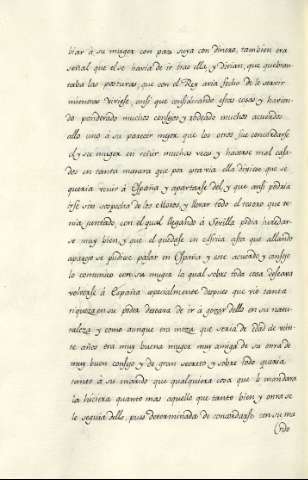 biar à su muger con paz suya con dinero, tambien era
señal que el se havia de ir tras ella, y dirian, que quebran
taba las posturas, que con el Rey avia fecho de le servir
mientras viviese, ansi que considerando estas cosas y havien
do ponderado muchos consejos, y rodeado muchos acuerdos
ello uno à su parecer mejor que los otros fue concordarse
el y su muger en reñir muchas veces y hacerse mal casa
dos en tanta manera que por otra via ella dixiese que se
queria vivir à España y apartarse del, y que ansi podria
irse sin sospecha de los Moros, y llevar todo el tesoro que te
nia juntado, con el qual llegando à Sevilla podia heredar
se muy bien, y que el quedase en Africa asta que alliando
aparejo se pudiese pasar en España y este acuerdo, y consejo
lo comunico con su muger la qual sobre toda cosa deseava
volverse à España especialmente despues que vio tanta
riqueza en su poder deseava de ir à gozar dello en su natu
raleza, y como aunque era moza que seria de diez de vein
te años era muy buena muger muy amiga de su onra de
muy buen consejo, y de gran secreto, y sobre todo queria
tanto à su marido que qualquiera cosa que le mandara
la hiciera quanto mas aquello que tanto bien y onra se
le seguia dello, pues determinada de concordarse con su ma
rido